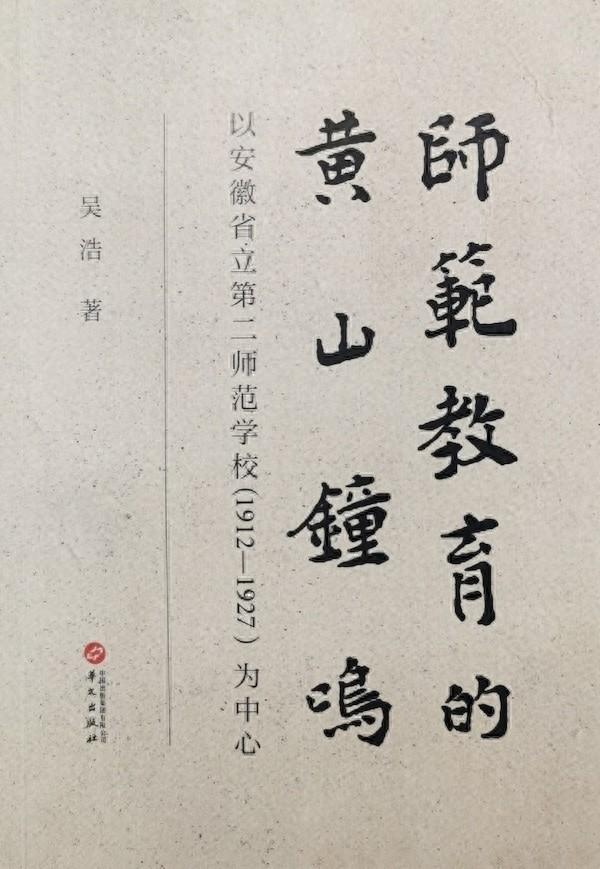 師範教育的
黄山鐘鳴
以安徽省立第二师范学校(1912—1927)为中心
吴浩 著
中国出版集团有限公司
華文出版社